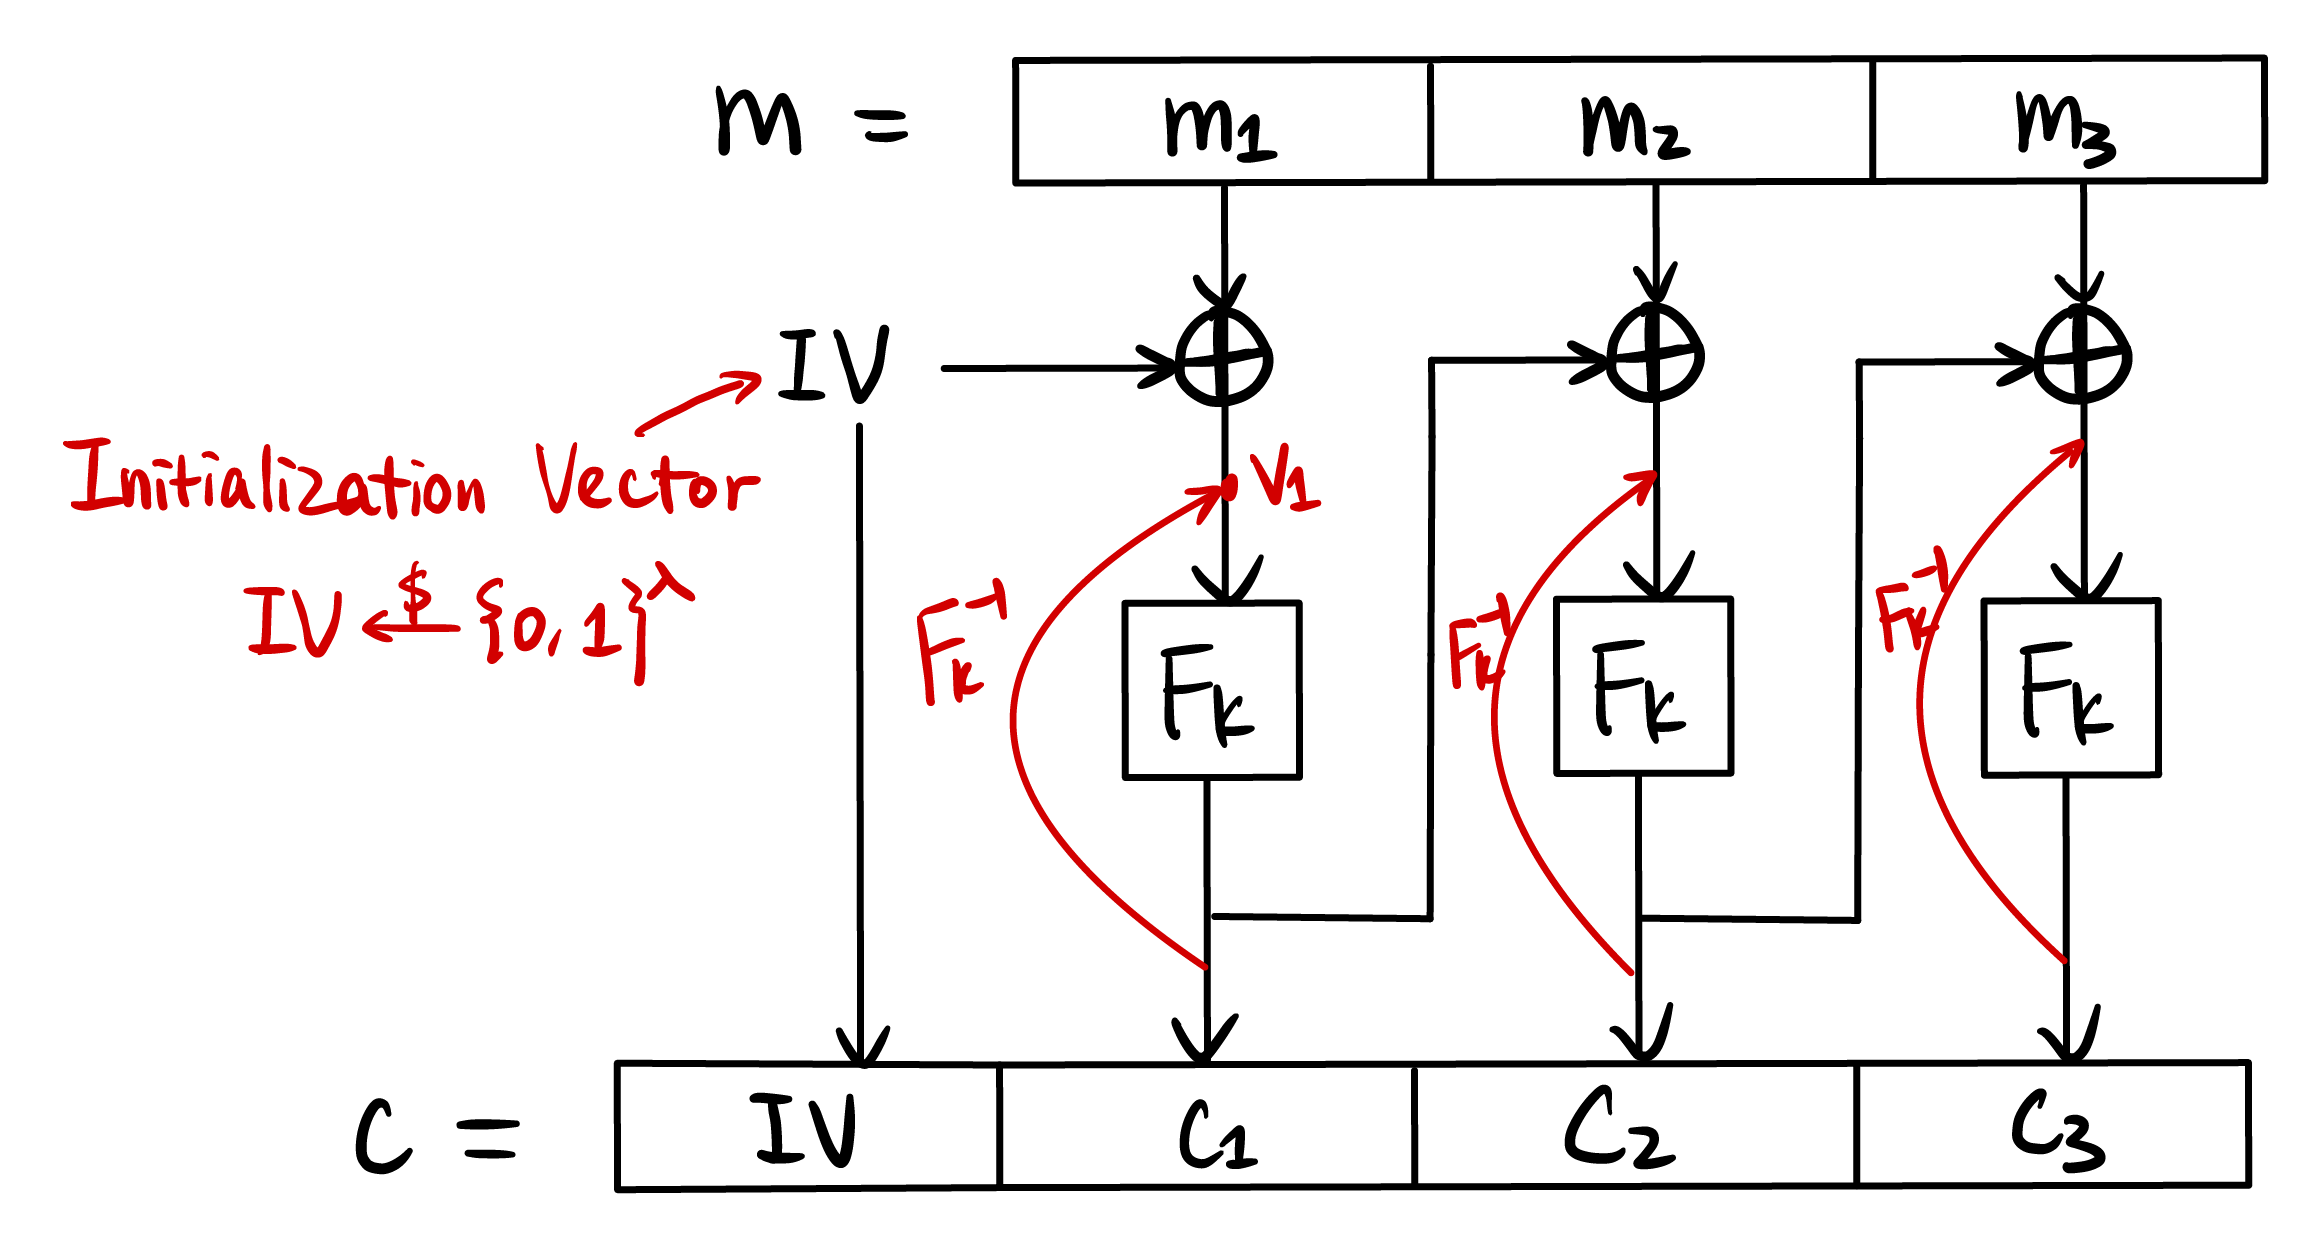 m = m₁ m₂ m₃
IV
Initialization Vector
V₁
IV ←$ {0,1}^λ
F_k^-1 F_k^-1 F_k^-1
F_k F_k F_k
C = IV C₁ C₂ C₃